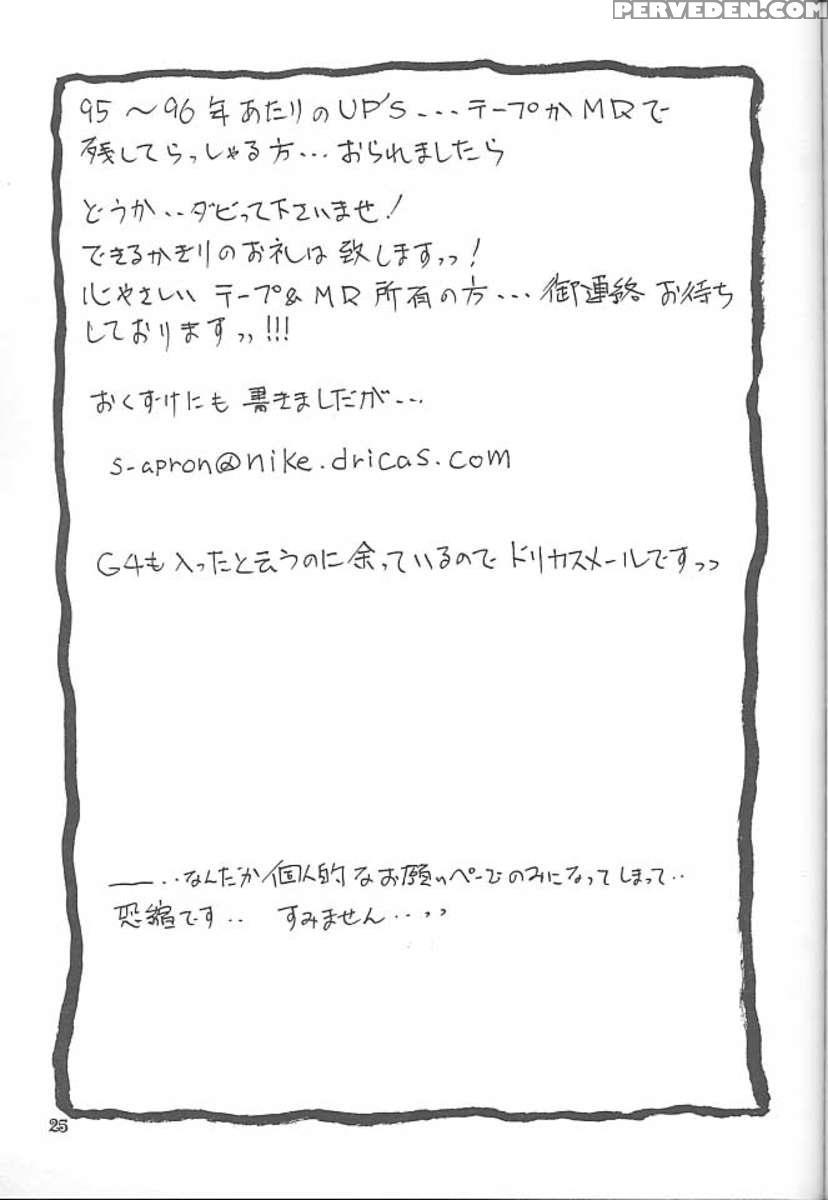 PERVEDEN.COM
95～96年あたりのUP'S...テープかMDで
残してらっしゃる方...おられましたら
どうか..ダビって下さいませ!
できるかぎりのお礼は致しますッッ!
心やさしい テープ&MD所有の方...御連絡お待ち
しておりますッッ!!!
おくずけにも書きましたが...
s-apron@nike.dricas.com
G4も入ったと云うのに余っているのでドリカスメールですッッ
――..なんだか個人的なお願いページのみになってしまって..
恐縮です.. すみません..ッッ
25